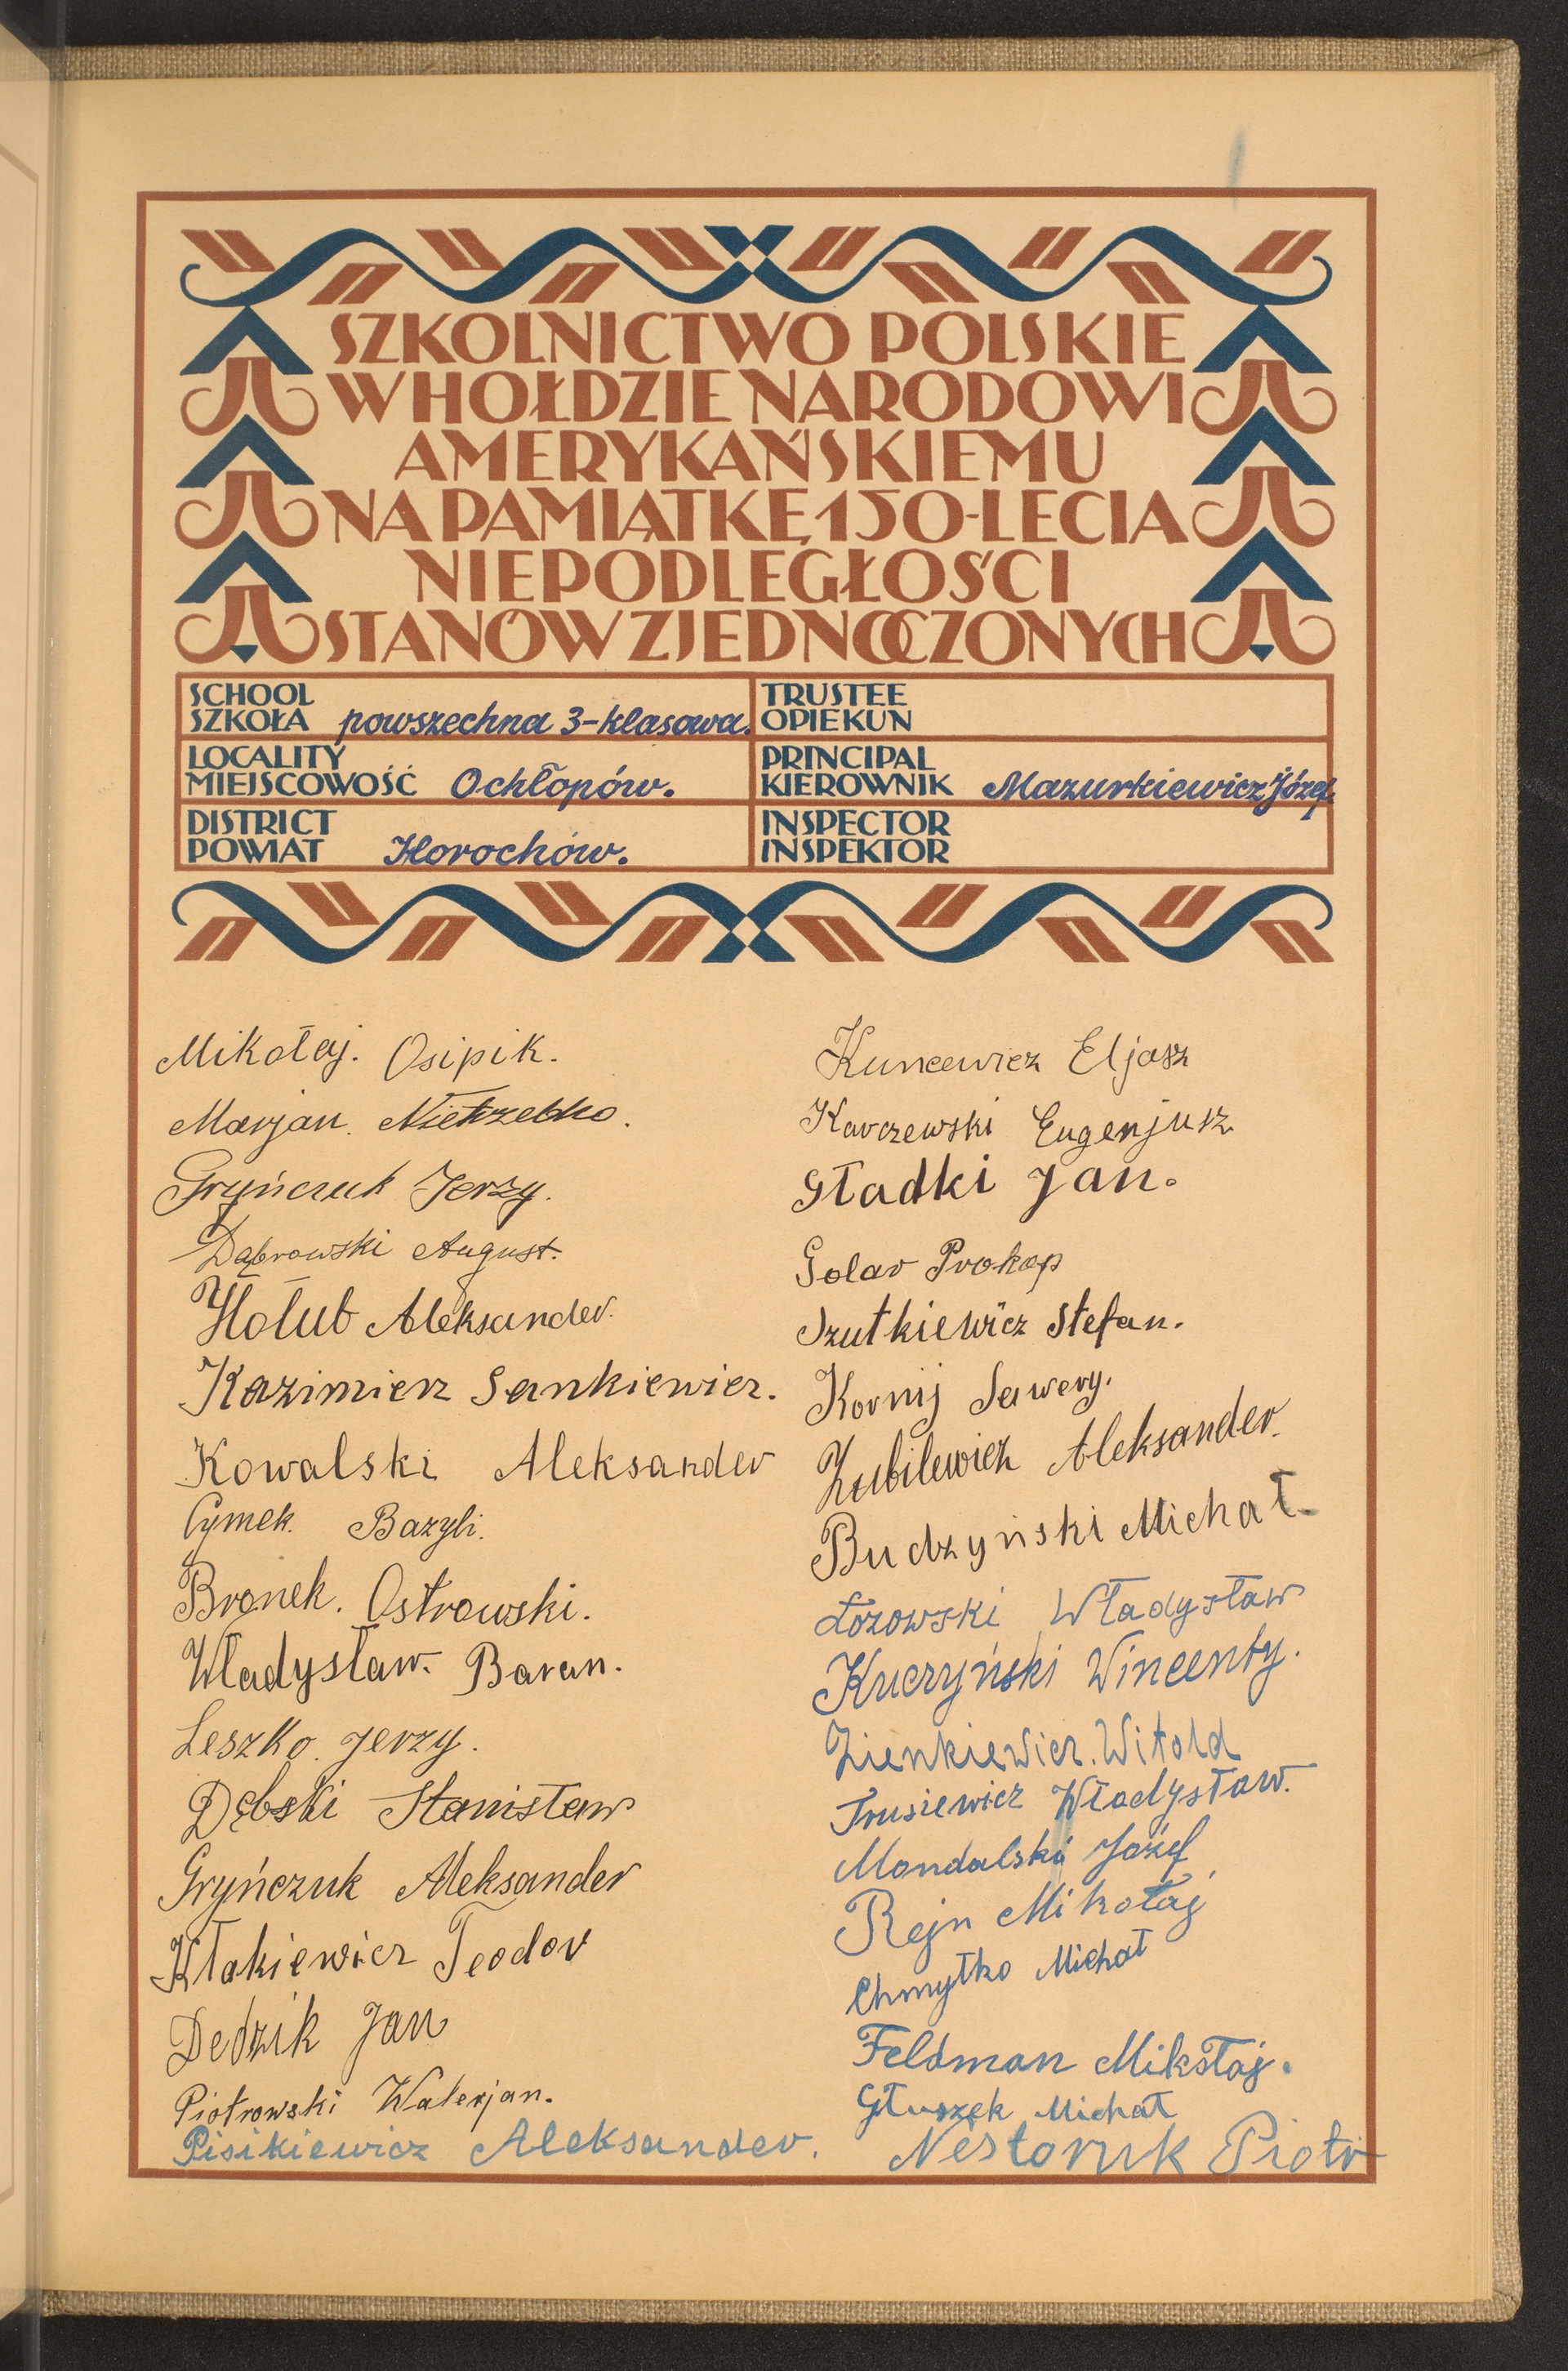 SZKOLNICTWO POLSKIE
W HOŁDZIE NARODOWI
AMERYKAŃSKIEMU
NA PAMIĄTKĘ 150-LECIA
NIEPODLEGŁOŚCI
STANÓW ZJEDNOCZONYCH
SCHOOL
SZKOŁA powszechna 3-klasowa.
TRUSTEE
OPIEKUN
LOCALITY
MIEJSCOWOŚĆ Ochłopów.
PRINCIPAL
KIEROWNIK Mazurkiewicz Józef.
DISTRICT
POWIAT Horochów.
INSPECTOR
INSPEKTOR
Mikołaj. Osipik.
Marjan. Nietrzebko.
Gryńczuk Jerzy.
Dąbrowski August.
Hołub Aleksander.
Kazimierz Sankiewicz.
Kowalski Aleksander
Cymek. Bazyli.
Bronek. Ostrowski.
Władysław. Baran.
Leszko. Jerzy.
Dębski Stanisław
Gryńczuk Aleksander
Kłakiewicz Teodor
Dedzik Jan
Piotrowski Walerjan.
Pisikiewicz Aleksander.
Kuncewicz Eljasz
Karczewski Eugenjusz
Gładki Jan.
Golar Prokop
Szutkiewicz Stefan.
Kornij Sawery.
Zubilewicz Aleksander.
Budzyński Michał
Łozowski Władysław
Kuczyński Wincenty.
Zienkiewicz. Witold
Trusiewicz Władysław.
Mondalski Józef
Rejn Mikołaj
Chmytko Michał
Feldman Mikołaj.
Głuszek Michał
Nestoruk Piotr